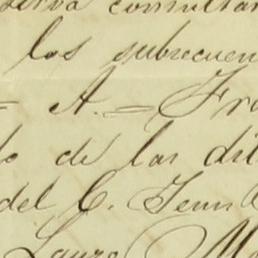 serva consultar
los subsecuen
= A. = Fra
do de las dil
del C. Tenn
Laura M